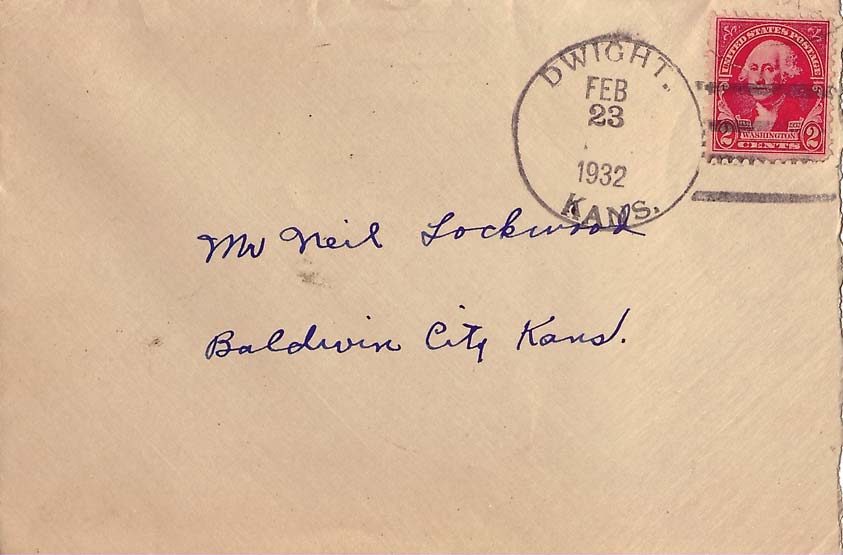 DWIGHT.
FEB
23
1932
KANS.
UNITED STATES POSTAGE
2 WASHINGTON 2
CENTS
Mr Neil Lockwood
Baldwin City Kans.